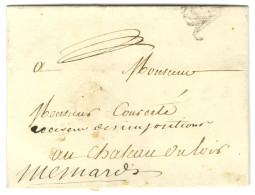 a Monsieur
Monsieur Courcité
receveur des impositions
au chateau du loir
mesnards